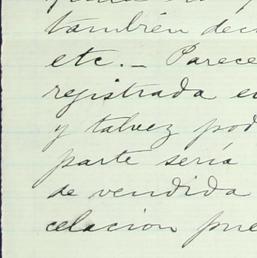 también dec
etc. — Parece
registrada e
y talvez pod
parte sería
de vendida
celacion pue